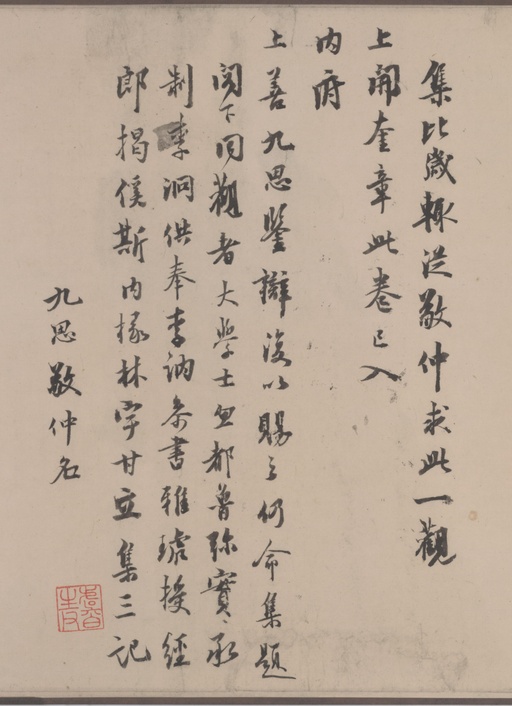 集比歲輒從敬仲求此一觀
上開奎章此卷已入
內府
上善九思鑒辯復以賜之仍命集題
閣下同觀者大學士忽都魯弥實承
制李泂供奉李訥参書雅琥授經
郎揭傒斯內掾林宇甘立集三記
九思敬仲名
虞伯生父